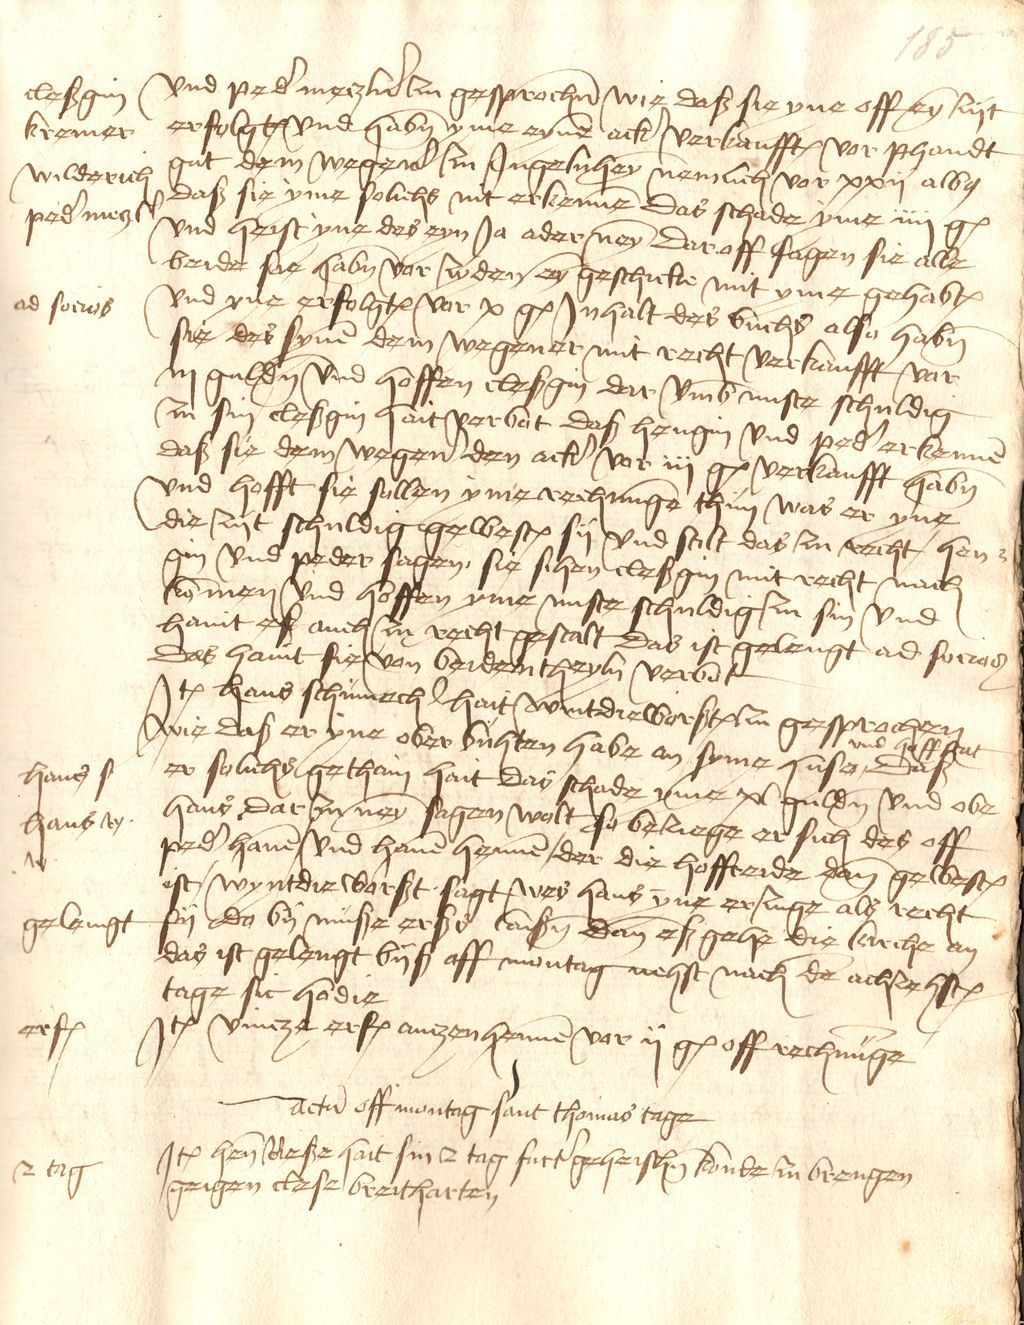 185
cleßgin
kremer
wilderich
ped' meczler
Vnd ped' meczler zu gesprochen wie daß sie yne off ey zijt
erfolgt vnd habn yme eyne ack' verkaufft vor phandt
gut dem wegen' zu Jngelnhey nemlich vor xxij alb
daß sie yme solichs nit erkenne das schade yme iiij gl
vnd heist yne des eyn Ja ader ney dar off sagen sie alle
beide sie habn vor zyden ey geschickt mit yme gehabt
ad socios
vnd yne erfolgt vor x gl Jnhalt des buchs also habn
sie des synen dem wegener mit recht verkaufft vor
iij guldn vnd hoffen cleßgin dar vmb nuste schuldig
zu sin cleßgin hait verbot daß hengin vnd ped' erkennen
daß sie dem wegen' den ack' vor iij gl verkaufft habn
vnd hofft sie sollen yme rechnunge thun was er yne
die zijt schuldig gewest sij vnd stilt das zu recht hen
gin vnd peder sagen sie sihen cleßgin mit recht nach
komen vnd hoffen yme nuste schuldig zu sin vnd
hant eß auch zu recht gestalt das ist gelengt ad socios
das hant sie von beiden theyln verbot
Jt hans schumech' hait wintdieworßt zu gesprochen
wie daß er yne ober buhten habe an syme huse daß
vnd hoffstat
hans s
er solichs gethain hait das schade yme xx guldn vnd obe
hans w
w
hans dar zu ney sagen wolt so beziege er sich des off
ped' hanen vnd hanen hennen der die hoffreide dan gewest
ist wyntdieworßt sagt wes hans yne erzuge als recht
gelengt
sij do by muße erßs laißn dan eß gehe die kirche an
das ist gelengt biß off montag nehst nach de achzehst
tage sic hodie
erf
Jt vincze erf anczen hennen vor ij gl off rechnunge
Actu off montag sant thomas tage
2 tag
Jt hen weße hait sin 2 tag furt geheischn konde zu brengen
geigen clese breitharten